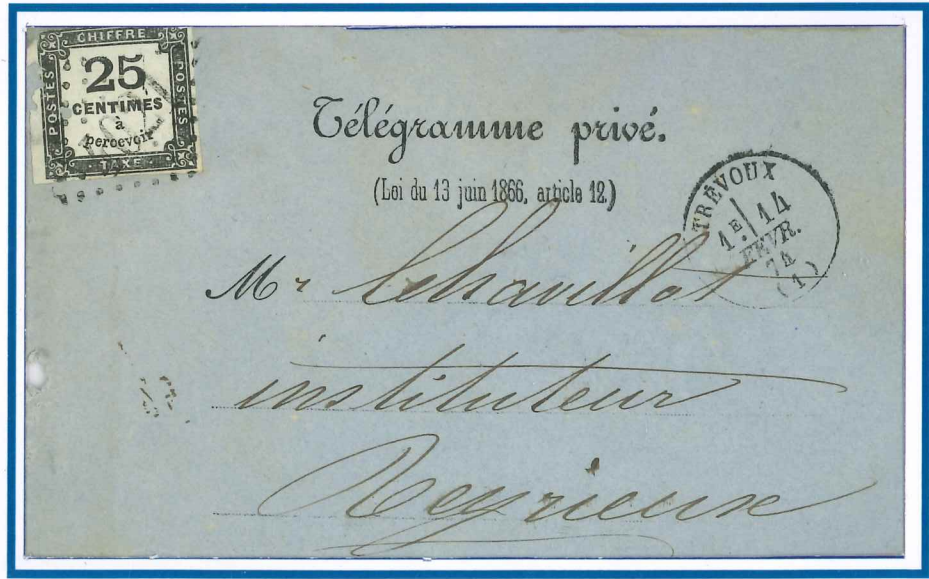 CHIFFRE
POSTES
25
CENTIMES
à
percevoir
POSTES
TAXE
Télégramme privé.
(Loi du 13 juin 1866, article 12.)
TRÉVOUX
1E 14
FEVR.
74
(1)
Mr Echavillot
instituteur
Reyrieux